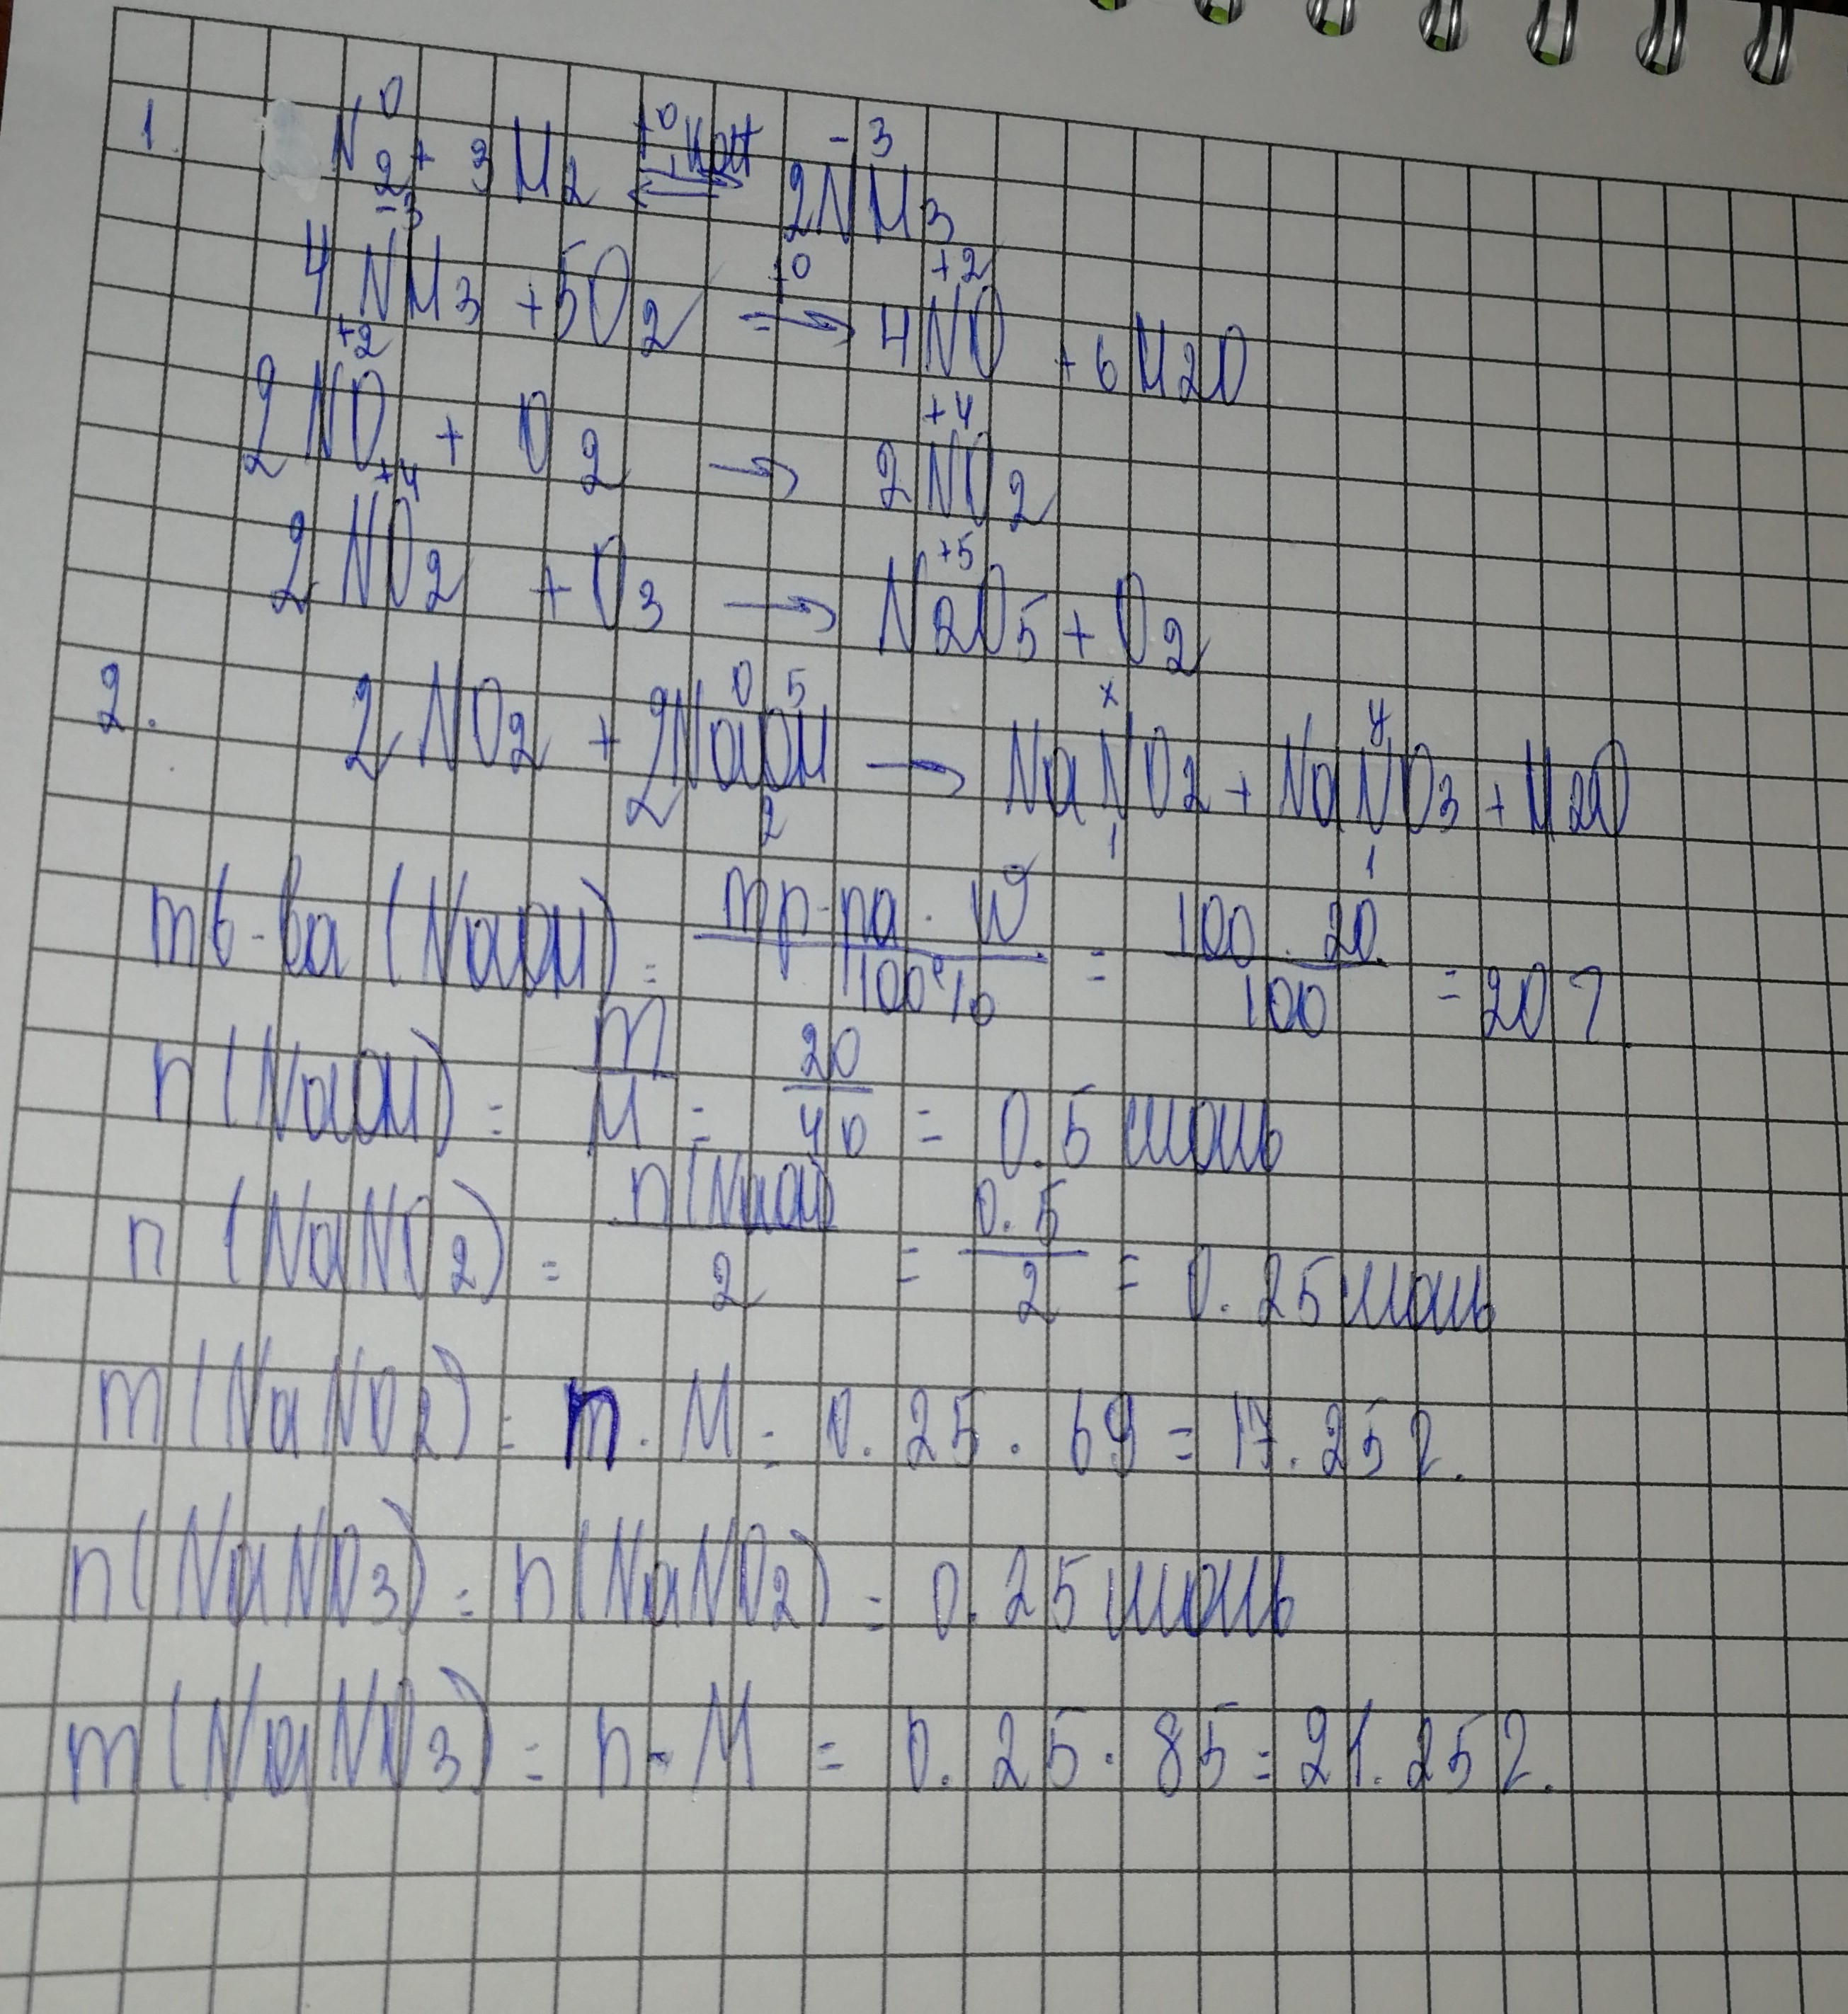 1. N₂⁰ + 3H₂ ⇄ (t⁰, кат) 2N⁻³H₃
4N⁻³H₃ + 5O₂ →(t⁰) 4N⁺²O + 6H₂O
2N⁺²O + O₂ → 2N⁺⁴O₂
2N⁺⁴O₂ + O₃ → N₂⁺⁵O₅ + O₂
2. 2NO₂ + 2NaOH (0.5 / 2) → NaNO₂ (x / 1) + NaNO₃ (y / 1) + H₂O
mв-ва (NaOH) = mр-ра · W / 100% = 100 · 20 / 100 = 20 г
n (NaOH) = m / M = 20 / 40 = 0.5 моль
n (NaNO₂) = n(NaOH) / 2 = 0.5 / 2 = 0.25 моль
m (NaNO₂) = n · M = 0.25 · 69 = 17.25 г.
n (NaNO₃) = n (NaNO₂) = 0.25 моль
m (NaNO₃) = n · M = 0.25 · 85 = 21.25 г.